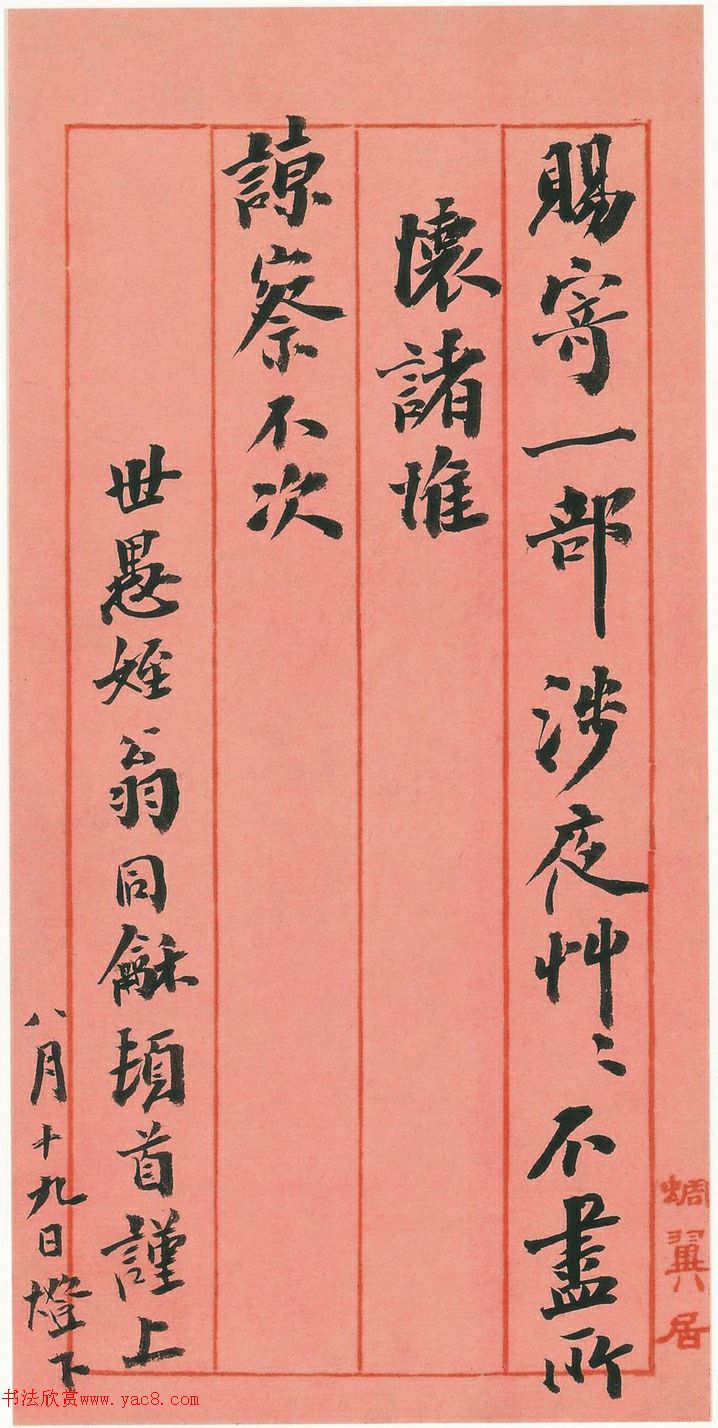 賜寄一部涉夜艸〻不盡所
懷諸惟
諒察不次
世愚姪翁同龢頓首謹上
八月十九日燈下
蜩翼居
书法欣赏www.yac8.com